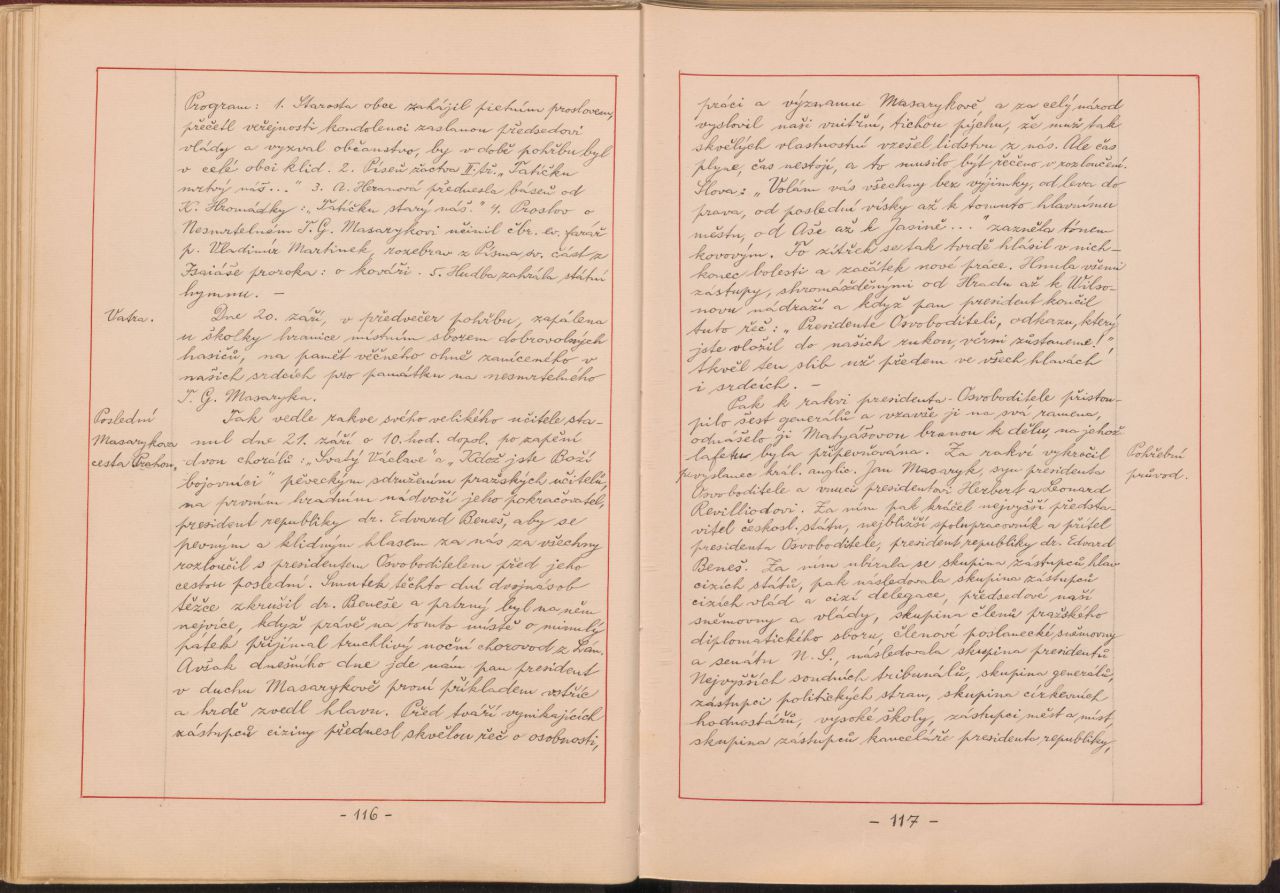 Program: 1. Starosta obce zahájil pietním proslovem,
přečetl veřejnosti kondolenci zaslanou předsedovi
vlády a vyzval občanstvo, by v době pohřbu byl
v celé obci klid. 2. Píseň žactva II. tř. „Tatíčku
mrtvý náš..." 3. A. Heranová přednesla báseň od
K. Hromádky: „Tatíčku starý náš." 4. Proslov o
Nesmrtelném T. G. Masarykovi učinil čbr. ev. farář
p. Vladimír Martinek, rozebrav z Písma sv. část z
Isaiáše proroka: o kováři. 5. Hudba zahrála státní
hymnu. –
Vatra.
Dne 20. září, v předvečer pohřbu, zapálena
u školky hranice místním sborem dobrovolných
hasičů, na paměť věčného ohně zaníceného v
našich srdcích pro památku na nesmrtelného
T. G. Masaryka.
Poslední
Masarykova
cesta Prahou.
Tak vedle rakve svého velikého učitele sta-
nul dne 21. září o 10. hod. dopol. po zapění
dvou chorálů: „Svatý Václave" a „Ktož jste Boží
bojovníci" pěveckým sdružením pražských učitelů,
na prvním hradním nádvoří jeho pokračovatel,
president republiky dr. Edvard Beneš, aby se
pevným a klidným hlasem za nás za všechny
rozloučil s presidentem Osvoboditelem před jeho
cestou poslední. Smutek těchto dní dvojnásob
těžce zkrušil dr. Beneše a patrný byl na něm
nejvíce, když právě na tomto místě o minulý
pátek přijímal truchlivý noční chorovod z Lán.
Avšak dnešního dne jde nám pan president
v duchu Masarykově první příkladem vstříc
a hrdě zvedl hlavu. Před tváří vynikajících
zástupců ciziny přednesl skvělou řeč o osobnosti,
- 116 -
práci a významu Masarykově a za celý národ
vyslovil naši vnitřní, tichou pýchu, že muž tak
skvělých vlastností vzešel lidstvu z nás. Ale čas
plyne, čas nestojí, a to musilo být řečeno v rozloučení.
Slova: „Volám vás všechny bez výjimky, od leva do
prava, od poslední vísky až k tomuto hlavnímu
městu, od Aše až k Jasině..." zazněla tónem
kovovým. To zítřek se tak tvrdě hlásil v nich-
konec bolesti a začátek nové práce. Hnula všemi
zástupy, shromážděnými od Hradu až k Wilso-
novu nádraží a když pan president končil
tuto řeč: „Presidente Osvoboditeli, odkazu, který
jste vložil do našich rukou, věrni zůstaneme!"
tkvěl ten slib už předem ve všech hlavách
i srdcích. –
Pak k rakvi presidenta-Osvoboditele přistou-
pilo šest generálů a vzavše ji na svá ramena,
odnášelo ji Matyášovou branou k dělu, na jehož
lafetu byla připevňována. Za rakví vykročil
vyslanec král. anglic. Jan Masaryk, syn presidenta
Osvoboditele a vnuci presidentovi Herbert a Leonard
Revilliodovi. Za ním pak kráčel nejvyšší předsta-
vitel českosl. státu, nejbližší spolupracovník a přítel
presidenta Osvoboditele, president republiky dr. Edvard
Beneš. Za ním ubírala se skupina zástupců hlav
cizích států, pak následovala skupina zástupců
cizích vlád a cizí delegace, předsedové naší
sněmovny a vlády, skupina členů pražského
diplomatického sboru, členové poslanecké sněmovny
a senátu N. S., následovala skupina presidentů
Nejvyšších soudních tribunálů, skupina generálů,
zástupci politických stran, skupina církevních
hodnostářů, vysoké školy, zástupci měst a míst,
skupina zástupců kanceláře presidenta republiky,
Pohřební
průvod.
- 117 -